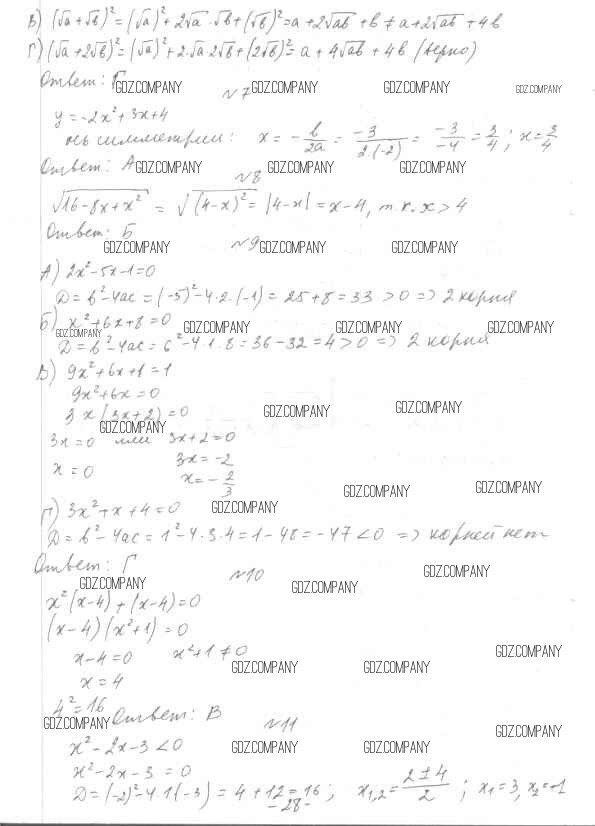 В) (√a+√b)² = (√a)² + 2√a · √b + (√b)² = a + 2√ab + b ≠ a + 2√ab + 4b
Г) (√a + 2√b)² = (√a)² + 2·√a·2√b + (2√b)² = a + 4√ab + 4b (верно)
Ответ: Г
GDZ.COMPANY GDZ.COMPANY GDZ.COMPANY GDZ.COMPANY
№7
y = -2x² + 3x + 4
ось симметрии: x = -b/2a = -3/2·(-2) = -3/-4 = 3/4; x = 3/4
Ответ: А GDZ.COMPANY GDZ.COMPANY GDZ.COMPANY
№8
√16-8x+x² = √(4-x)² = |4-x| = x-4, т.к. x > 4
Ответ: Б
GDZ.COMPANY №9 GDZ.COMPANY GDZ.COMPANY
А) 2x² - 5x - 1 = 0
D = b² - 4ac = (-5)² - 4·2·(-1) = 25 + 8 = 33 > 0 => 2 корня
Б) x² + 6x + 8 = 0 GDZ.COMPANY GDZ.COMPANY GDZ.COMPANY
GDZ.COMPANY
D = b² - 4ac = 6² - 4·1·8 = 36 - 32 = 4 > 0 => 2 корня
В) 9x² + 6x + 1 = 1
9x² + 6x = 0
3x(3x+2) = 0 GDZ.COMPANY GDZ.COMPANY
GDZ.COMPANY
3x = 0 или 3x + 2 = 0
x = 0 3x = -2
x = -2/3
GDZ.COMPANY GDZ.COMPANY
Г) 3x² + x + 4 = 0 GDZ.COMPANY
D = b² - 4ac = 1² - 4·3·4 = 1 - 48 = -47 < 0 => корней нет
Ответ: Г
GDZ.COMPANY №10 GDZ.COMPANY GDZ.COMPANY
x²(x-4) + (x-4) = 0
(x-4)(x²+1) = 0
x - 4 = 0 x² + 1 ≠ 0 GDZ.COMPANY
GDZ.COMPANY GDZ.COMPANY
x = 4
4² = 16
GDZ.COMPANY Ответ: В
№11 GDZ.COMPANY
x² - 2x - 3 < 0 GDZ.COMPANY GDZ.COMPANY
x² - 2x - 3 = 0
D = (-2)² - 4·1(-3) = 4 + 12 = 16; x₁,₂ = 2±4/2; x₁ = 3, x₂ = -1
- 28 -